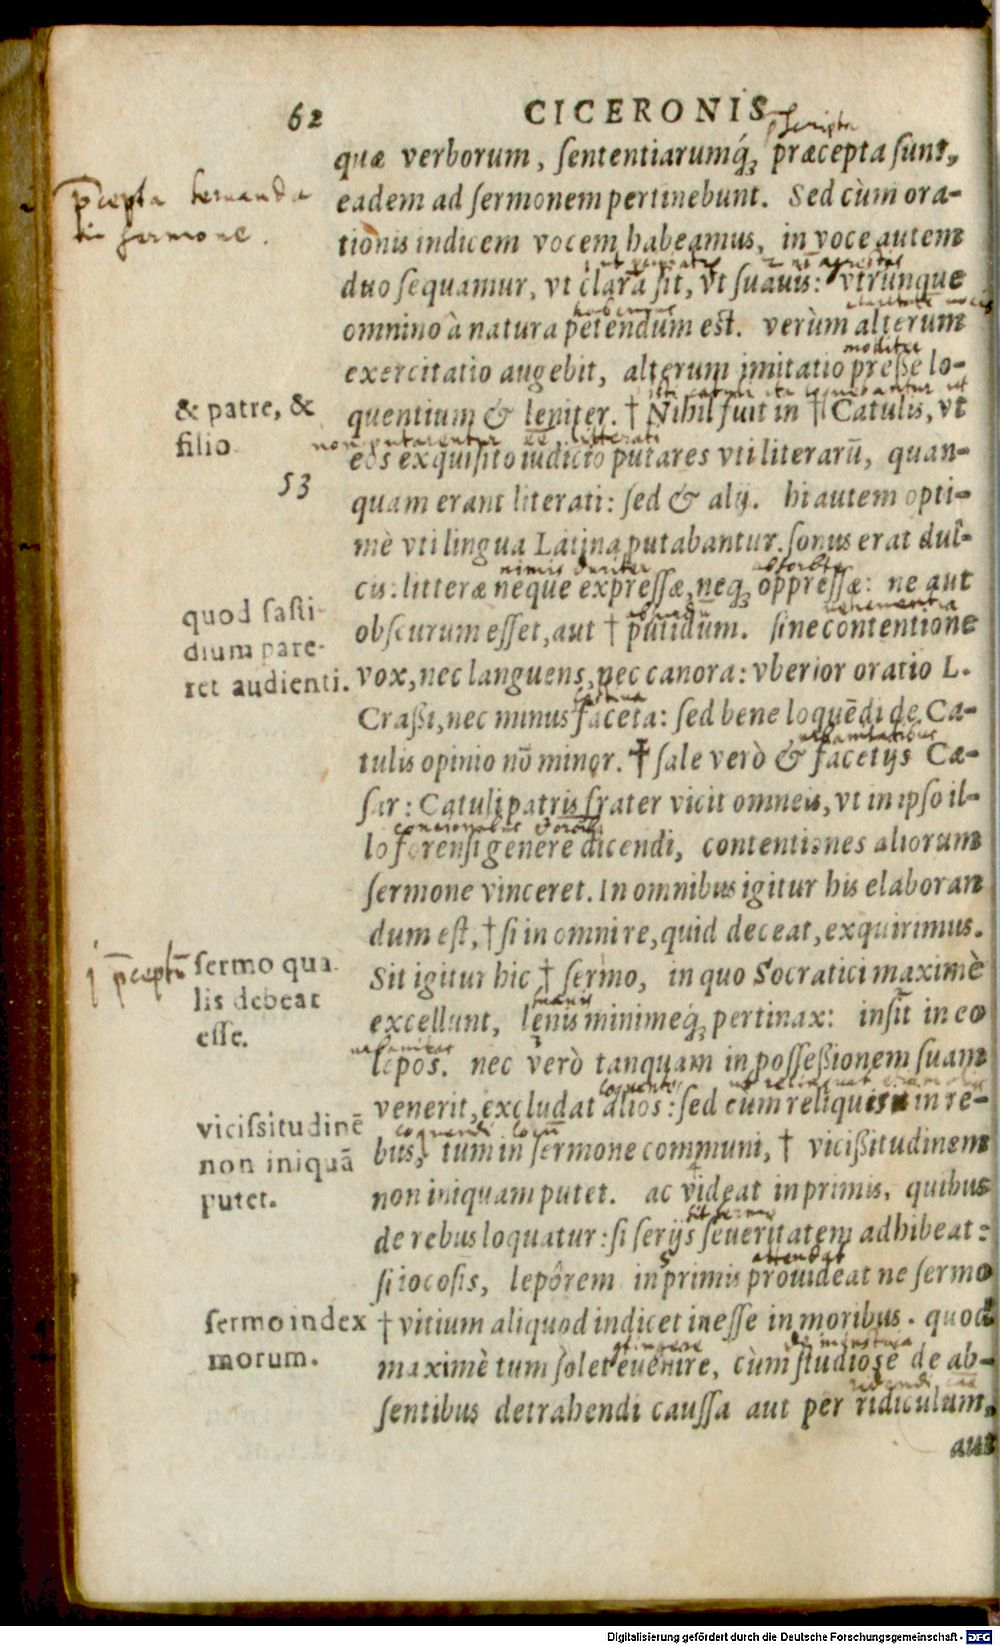 62 CICERONIS
quæ verborum, sententiarumq́; præcepta sunt,
pcepta seruanda
in sermone.
eadem ad sermonem pertinebunt. Sed cùm ora-
tionis indicem vocem habeamus, in voce autem
duo sequamur, vt clara sit, vt suauis: vtrunque
omnino à natura petendum est. verùm alterum
exercitatio augebit, alterum imitatio preße lo-
& patre, &
filio
quentium & leniter. † Nihil fuit in † Catulis, vt
non putarentur ee litterati
eos exquisito iudicio putares vti literarū, quan-
53
quam erant literati: sed & alij. hi autem opti-
mè vti lingua Latina putabantur. sonus erat dul-
nimis
cis: litteræ neque expressæ, neq; oppressæ: ne aut
quod fasti-
dium pare-
ret audienti.
obscurum esset, aut † putidum. sine contentione
vox, nec languens, nec canora: vberior oratio L.
Craßi, nec minus faceta: sed bene loquēdi de Ca-
tulis opinio nō minor. † sale verò & facetijs Cæ-
sar: Catuli patris frater vicit omneis, vt in ipso il-
lo forensi genere dicendi, contentiones aliorum
sermone vinceret. In omnibus igitur his elaboran
dum est, † si in omni re, quid deceat, exquirimus.
sermo qua
lis debeat
esse.
Sit igitur hic † sermo, in quo Socratici maximè
suauis
excellunt, lenis minimeq́; pertinax: insit in eo
lepos. nec verò tanquam in possessionem suam
venerit, excludat alios: sed cum reliquis in re-
vicissitudinē
non iniquā
putet.
loquendi locū
bus, tum in sermone communi, † vicißitudinem
non iniquam putet. ac videat inprimis, quibus
de rebus loquatur: si serijs seueritatem adhibeat:
si iocosis, lepôrem inprimis prouideat ne sermo
sermo index
morum.
† vitium aliquod indicet inesse in moribus. quod
maximè tum solet euenire, cùm studiose de ab-
sentibus detrahendi caussa aut per ridiculum,
aut
Digitalisierung gefördert durch die Deutsche Forschungsgemeinschaft - DFG